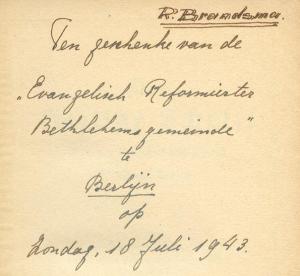 R. Brandsma.
Ten geschenke van de
„Evangelisch Reformierter
Bethlehemsgemeinde"
te
Berlijn
op
Zondag, 18 Juli 1943.